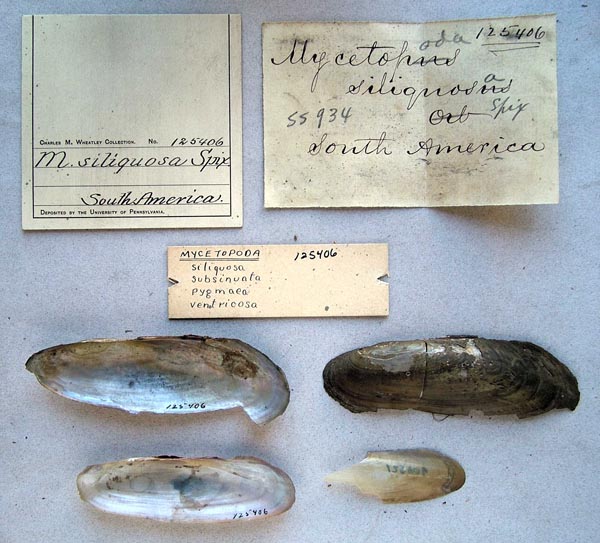 CHARLES M. WHEATLEY COLLECTION. No. 125406
M. siliquosa Spix
South America.
DEPOSITED BY THE UNIVERSITY OF PENNSYLVANIA.
125406
Mycetopus oda
siliquosus a
SS934 Orb Spix
South America
MYCETOPODA 125406
siliquosa
subsinuata
pygmaea
ventricosa
125406
125406
125406